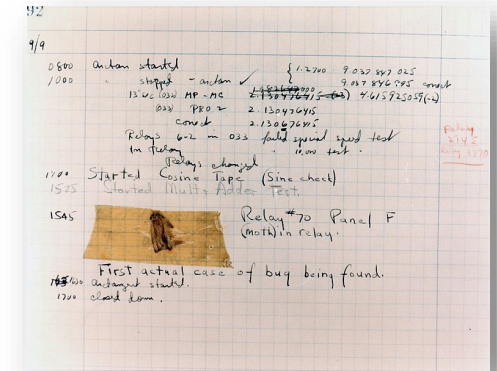 92
9/9
0800 Antan started
1000 " stopped - antan ✓ { 1.2700 9.037 847 025
9.037 846 995 correct
13"uc (032) MP - MC 2.130476415 (-3) 4.615925059(-2)
(033) PRO 2 2.130476415
correct 2.130676415
Relays 6-2 in 033 failed special speed test
in relay 10.000 test.
Relays changed
1100 Started Cosine Tape (Sine check)
1525 Started Mult + Adder Test.
1545 Relay #70 Panel F
(moth) in relay.
First actual case of bug being found.
1630 antangent started.
1700 closed down.
Relay